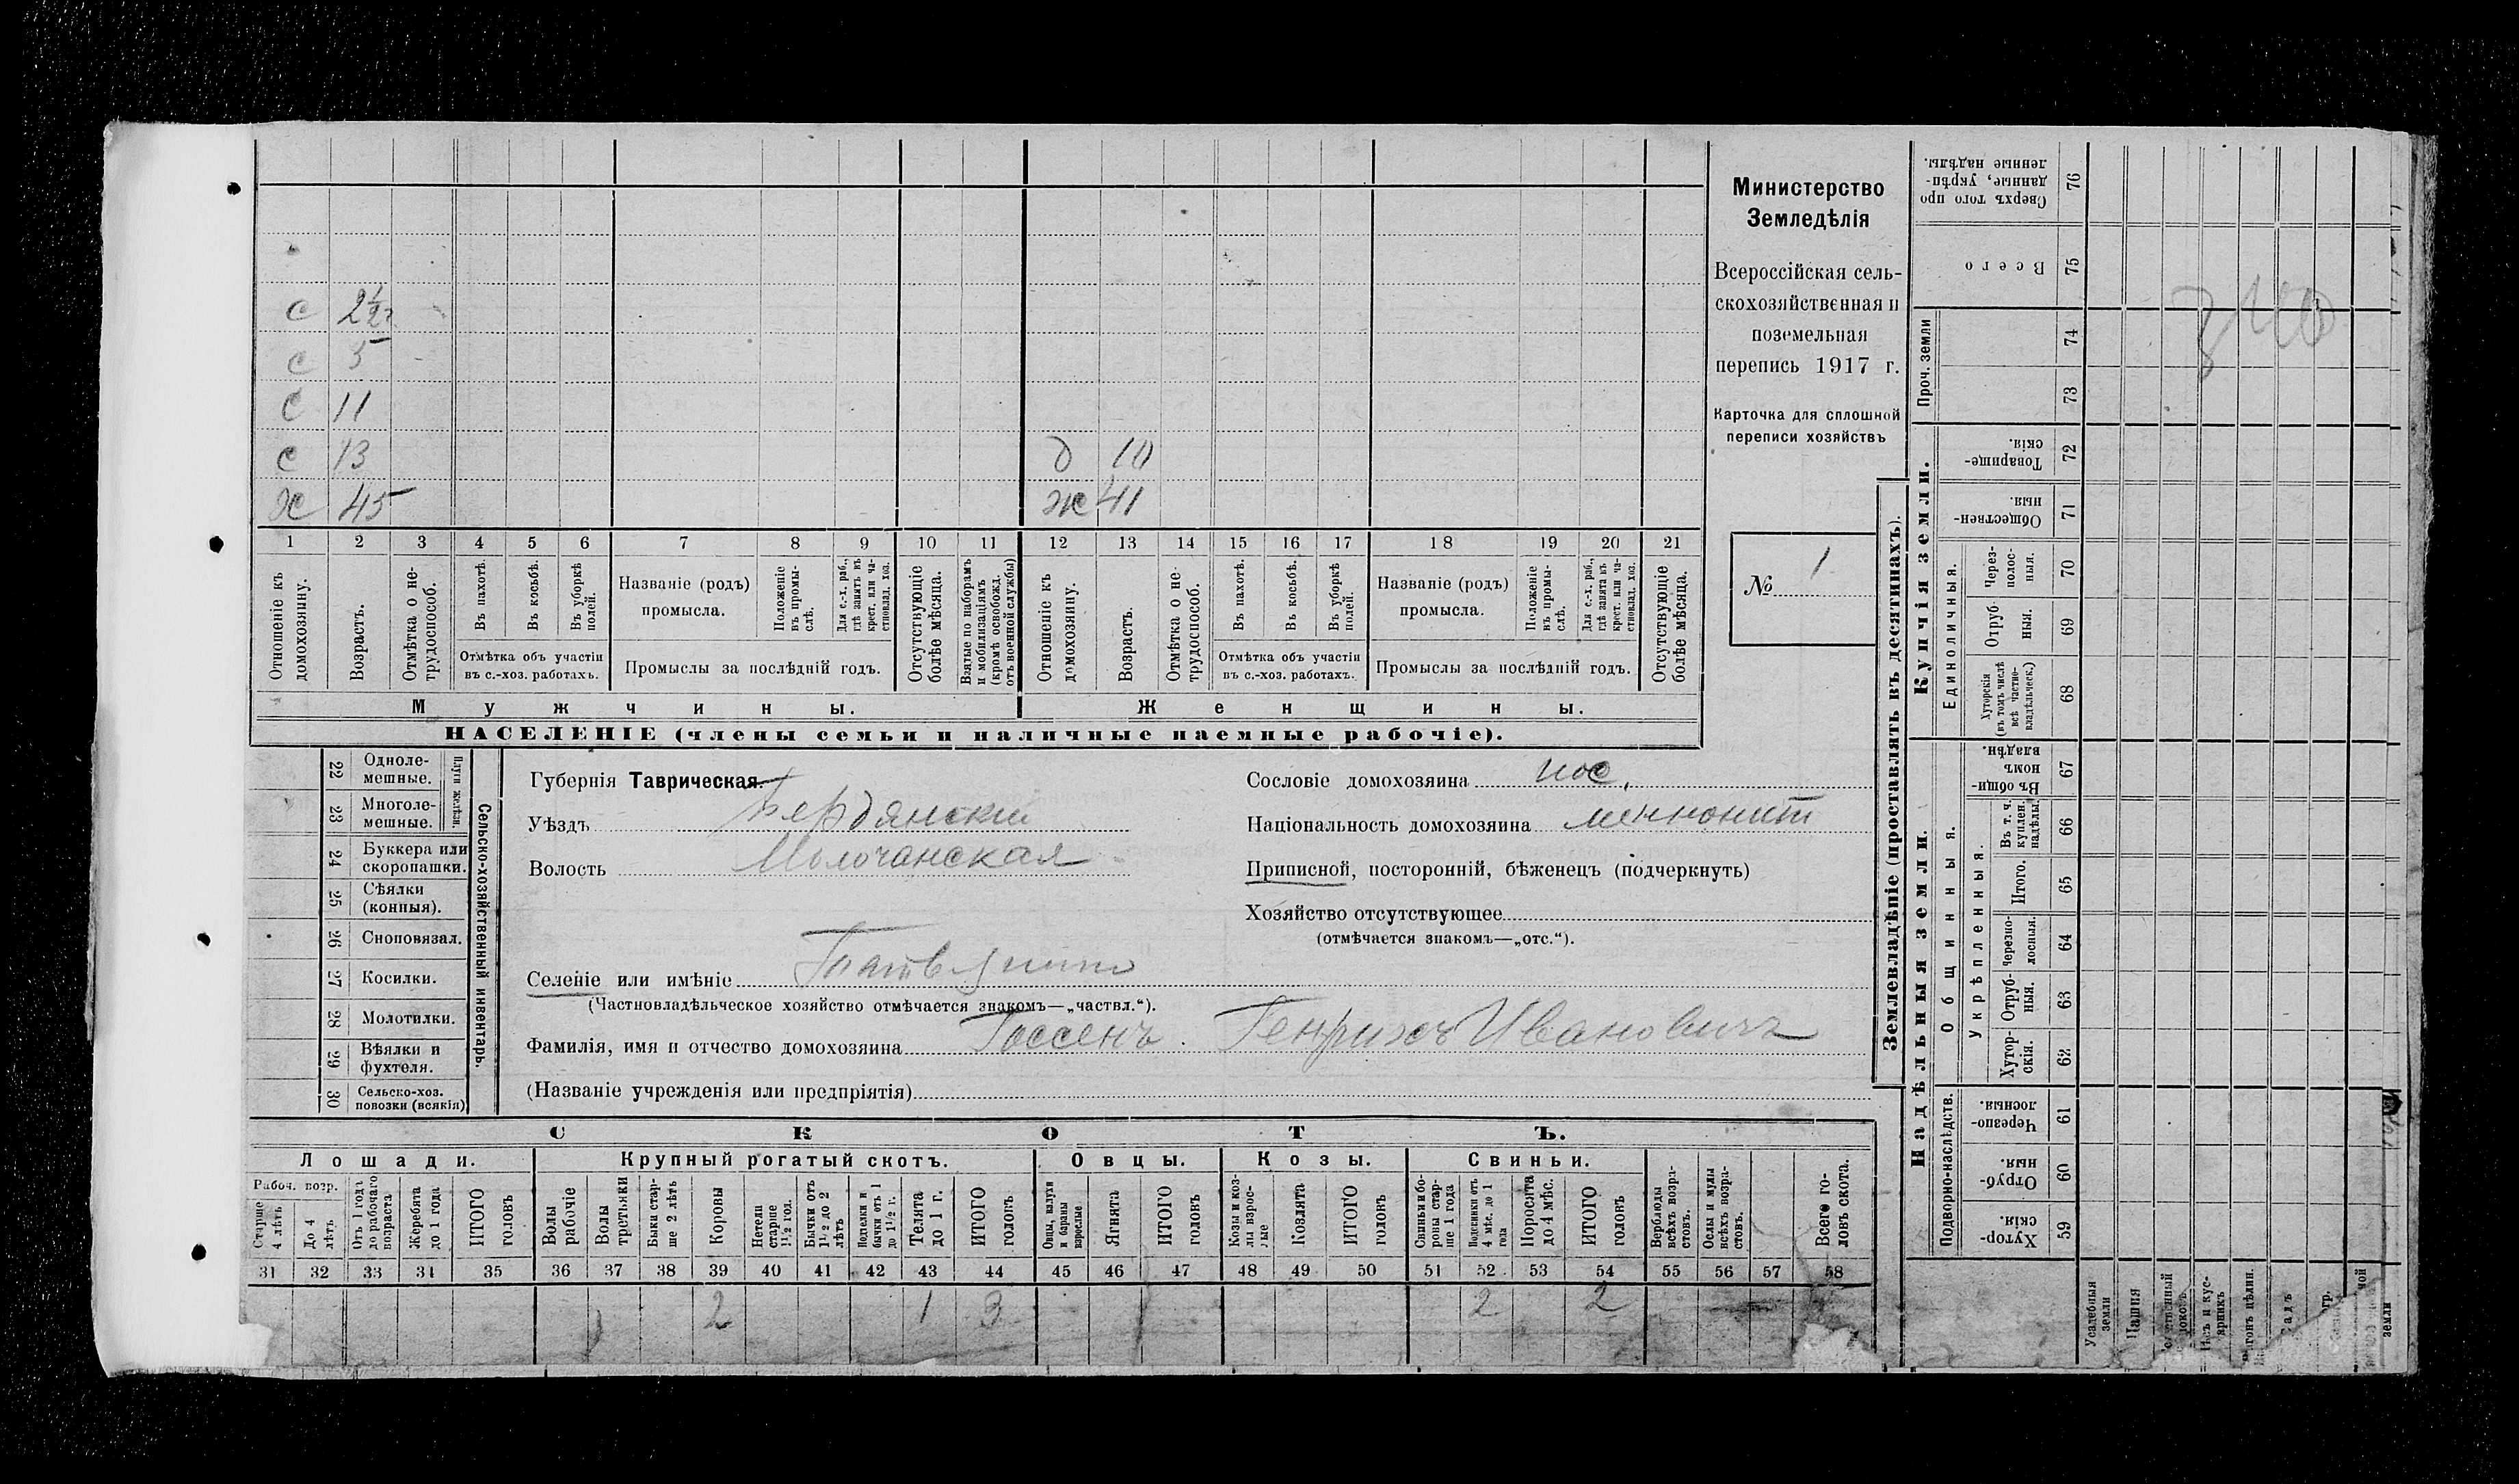 с 2½г
с 5
с 11
с 13 д 10
х 45 ж 41
1 2 3 4 5 6 7 8 9 10 11 12 13 14 15 16 17 18 19 20 21
Отношеніе къ домохозяину.
Возрастъ.
Отмѣтка о не-трудоспособ.
Въ пахотѣ.
Въ косьбѣ.
Въ уборкѣ полей.
Отмѣтка объ участіи
въ с.-хоз. работахъ.
Названіе (родъ)
промысла.
Положеніе въ промы-слѣ.
Для с.-х. раб., гдѣ занятъ въ крест. или ча-стновлад. хоз.
Промыслы за послѣдній годъ.
Отсутствующіе болѣе мѣсяца.
Взятые по наборамъ и мобилизаціямъ (кромѣ освобожд. отъ военной службы)
Отношеніе къ домохозяину.
Возрастъ.
Отмѣтка о не-трудоспособ.
Въ пахотѣ.
Въ косьбѣ.
Въ уборкѣ полей.
Отмѣтка объ участіи
въ с.-хоз. работахъ.
Названіе (родъ)
промысла.
Положеніе въ промы-слѣ.
Для с.-х. раб., гдѣ занята въ крест. или ча-стновлад. хоз.
Промыслы за послѣдній годъ.
Отсутствующіе болѣе мѣсяца.
Мужчины. Женщины.
НАСЕЛЕНІЕ (члены семьи и наличные наемные рабочіе).
Министерство
Земледѣлія
Всероссійская сель-
скохозяйственная и
поземельная
перепись 1917 г.
Карточка для сплошной
переписи хозяйствъ
№ 1
22 Однолемешные.
23 Многолемешные.
Плуги желѣзн.
24 Буккера или скоропашки.
25 Сѣялки (конныя).
26 Сноповязал.
27 Косилки.
28 Молотилки.
29 Вѣялки и фухтеля.
30 Сельско-хоз. повозки (всякія)
Сельско-хозяйственный инвентарь.
Губернія Таврическая.
Уѣздъ Бердянскій
Волость Молочанская
Селеніе или имѣніе
(Частновладѣльческое хозяйство отмѣчается знакомъ—„частвл.“).
Фамилія, имя и отчество домохозяина Госсенъ. Генрихъ Ивановичъ
(Названіе учрежденія или предпріятія)
Сословіе домохозяина пос.
Національность домохозяина меннонит
Приписной, посторонній, бѣженецъ (подчеркнуть)
Хозяйство отсутствующее
(отмѣчается знакомъ—„отс.“).
СКОТЪ.
Лошади. Крупный рогатый скотъ. Овцы. Козы. Свиньи.
Рабоч. возр.
Старше 4 лѣтъ
До 4 лѣтъ
Отъ 1 года до рабочаго возраста
Жеребята до 1 года
ИТОГО головъ
Волы рабочіе
Волы третьяки
Быки старше 2 лѣтъ
Коровы
Нетели старше 1½ год.
Бычки отъ 1½ до 2 лѣтъ
Подтелки и бычки отъ 1 до 1½ г.
Телята до 1 г.
ИТОГО головъ
Овцы, валухи и бараны взрослые
Ягнята
ИТОГО головъ
Козы и козлы взрослые
Козлята
ИТОГО головъ
Свиньи и боровы старше 1 года
Подсвинки отъ 4 мѣс. до 1 года
Поросята до 4 мѣс.
ИТОГО головъ
Верблюды всѣхъ возрастовъ.
Ослы и мулы всѣхъ возрастовъ.
Всего головъ скота.
31 32 33 34 35 36 37 38 39 40 41 42 43 44 45 46 47 48 49 50 51 52 53 54 55 56 57 58
2 1 3 2 2
Землевладѣніе (проставлять въ десятинахъ).
Купчія земли.
Надѣльныя земли.
Сверхъ того проданные, укрѣпленные надѣлы. 76
Всего 75
Проч. земли
74
73
Товарищескія. 72
Общественныя. 71
Единоличныя.
Черезполосныя. 70
Отрубныя. 69
Хуторскія (въ томъ числѣ всѣ частновладѣльческ.) 68
Общинныя.
Въ общинномъ владѣн. 67
Укрѣпленныя.
Въ т. ч. куплен. надѣлы. 66
Итого. 65
Черезполосныя. 64
Отрубныя. 63
Хуторскія. 62
Подворно-наслѣдств.
Черезполосныя. 61
Отрубныя. 60
Хуторскія. 59
Усадебныя земли
Пашня
земли